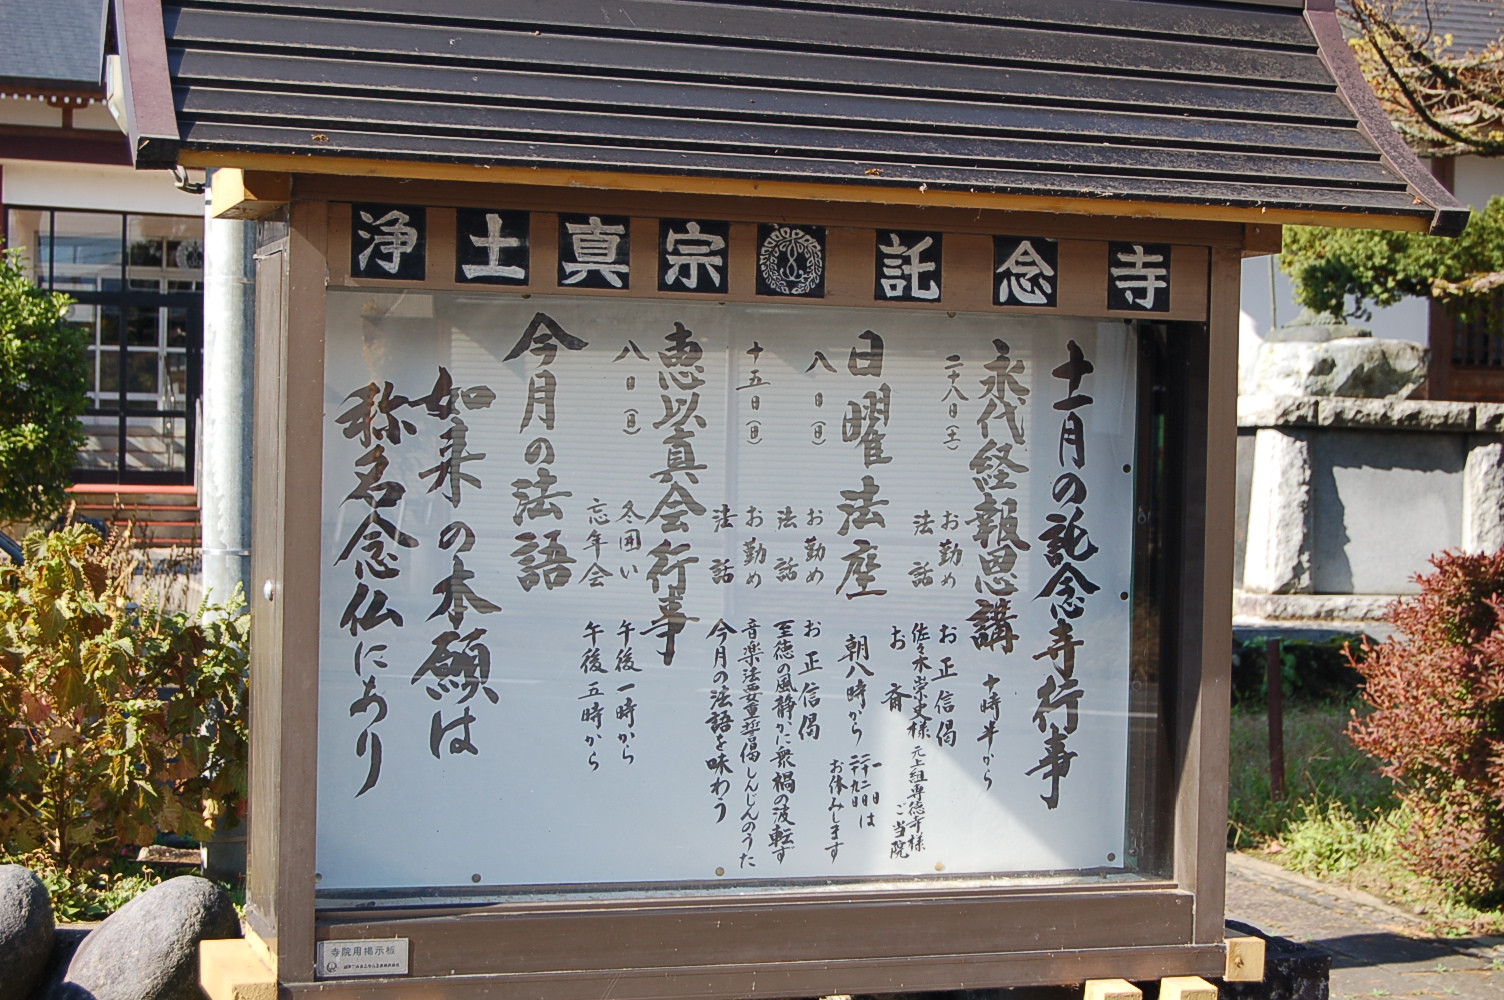 浄土真宗 託念寺
十一月の託念寺行事
永代経報恩講 十時半から
二十八日(土) お勤め お正信偈
法話 佐々木崇史様 元上組専徳寺様
お斎 ご当院
日曜法座 朝八時から
一日
二十二日は
二十九日
お休みします
八日(日) お勤め お正信偈
法話 至徳の風静かに衆禍の波転ず
十五日(日) お勤め 音楽法要重誓偈しんじんのうた
法話 今月の法語を味わう
恵以真会行事
八日(日) 冬囲い 午後一時から
忘年会 午後五時から
今月の法語
如来の本願は
称名念仏にあり
寺院用掲示板